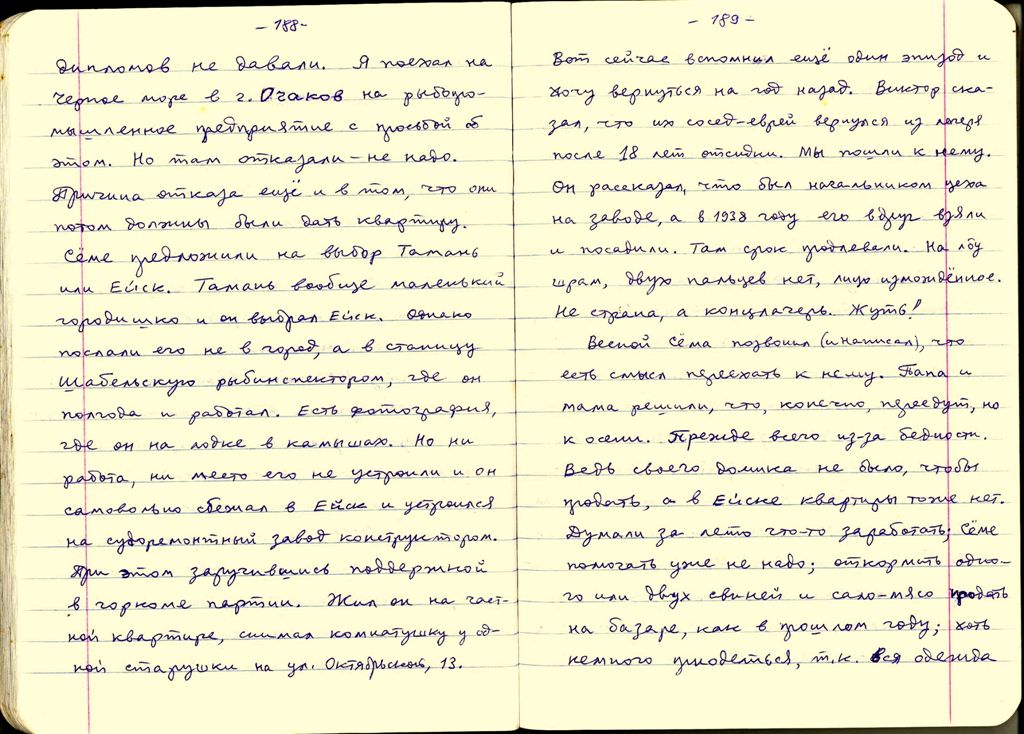 - 188 -
дипломов не давали. Я поехал на
Черное море в г. Очаков на рыбопро-
мышленное предприятие с просьбой об
этом. Но там отказали - не надо.
Причина отказа ещё и в том, что они
потом должны были дать квартиру.
Сёме предложили на выбор Тамань
или Ейск. Тамань вообще маленький
городишко и он выбрал Ейск. Однако
послали его не в город, а в станицу
Шабельскую рыбинспектором, где он
полгода и работал. Есть фотография,
где он на лодке в камышах. Но ни
работа, ни место его не устроили и он
самовольно сбежал в Ейск и устроился
на судоремонтный завод конструктором.
При этом заручившись поддержкой
в горкоме партии. Жил он на част-
ной квартире, снимал комнатушку у од-
ной старушки на ул. Октябрьской, 13.
- 189 -
Вот сейчас вспомнил ещё один эпизод и
хочу вернуться на год назад. Виктор ска-
зал, что их сосед-еврей вернулся из лагеря
после 18 лет отсидки. Мы пошли к нему.
Он рассказал, что был начальником цеха
на заводе, а в 1938 году его вдруг взяли
и посадили. Там срок продлевали. На лбу
шрам, двух пальцев нет, лицо измождённое.
Не страна, а концлагерь. Жуть!
Весной Сёма позвонил (и написал), что
есть смысл переехать к нему. Папа и
мама решили, что, конечно, переедут, но
к осени. Прежде всего из-за бедности.
Ведь своего домика не было, чтобы
продать, а в Ейске квартиры тоже нет.
Думали за лето что-то заработать; Сёме
помогать уже не надо; откормить одно-
го или двух свиней и сало-мясо продать
на базаре, как в прошлом году; хоть
немного приодеться, т.к. вся одежда